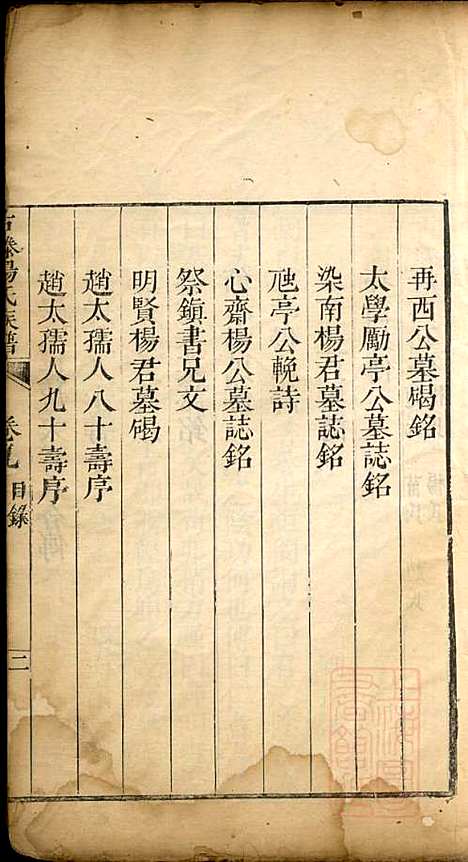 再西公墓碣銘
太學勵亭公墓誌銘
染南楊君墓誌銘
虺亭公輓詩
心齋楊公墓誌銘
祭鎮書兄文
明賢楊君墓碣
趙太孺人八十壽序
趙太孺人九十壽序
楊氏族譜
卷九
目錄
二